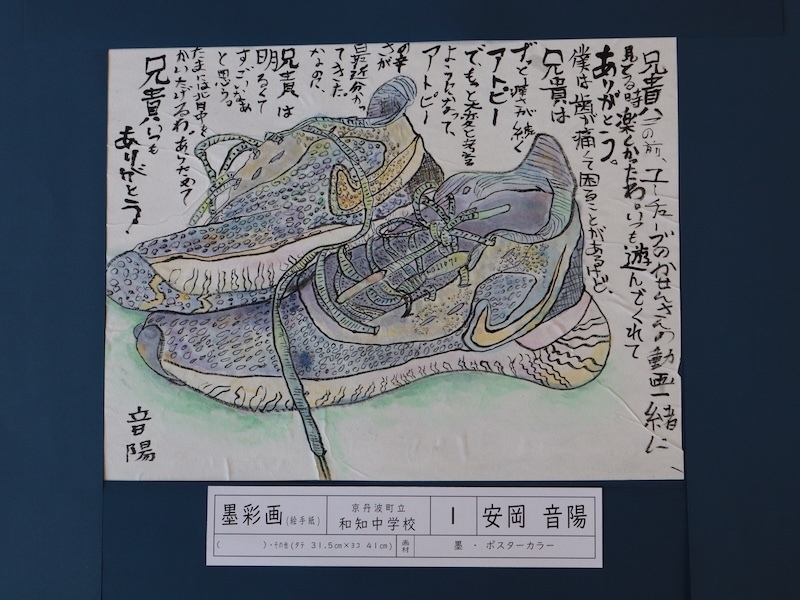 兄貴八この前、ユーチューブのかせんさんの動画一緒に
見てる時楽しかったわ。いつも遊んでくれて
ありがとう。
僕は歯が痛くて困ることがあるけど、
兄貴は
ずっと痒さが続く
アトピー
で、もっと大変と思う
アトピー
の辛
さが
最近分かっ
てきた。
なのに
兄貴は
明るくて
すごいなあ
と思う。
たまには
兄貴いつも
ありがとう!
音陽
墨彩画(絵手紙)
京丹波町立
和知中学校
1
安岡 音陽
( )・その他(タテ 31.5cm×ヨコ 41cm)
画材
墨・ポスターカラー